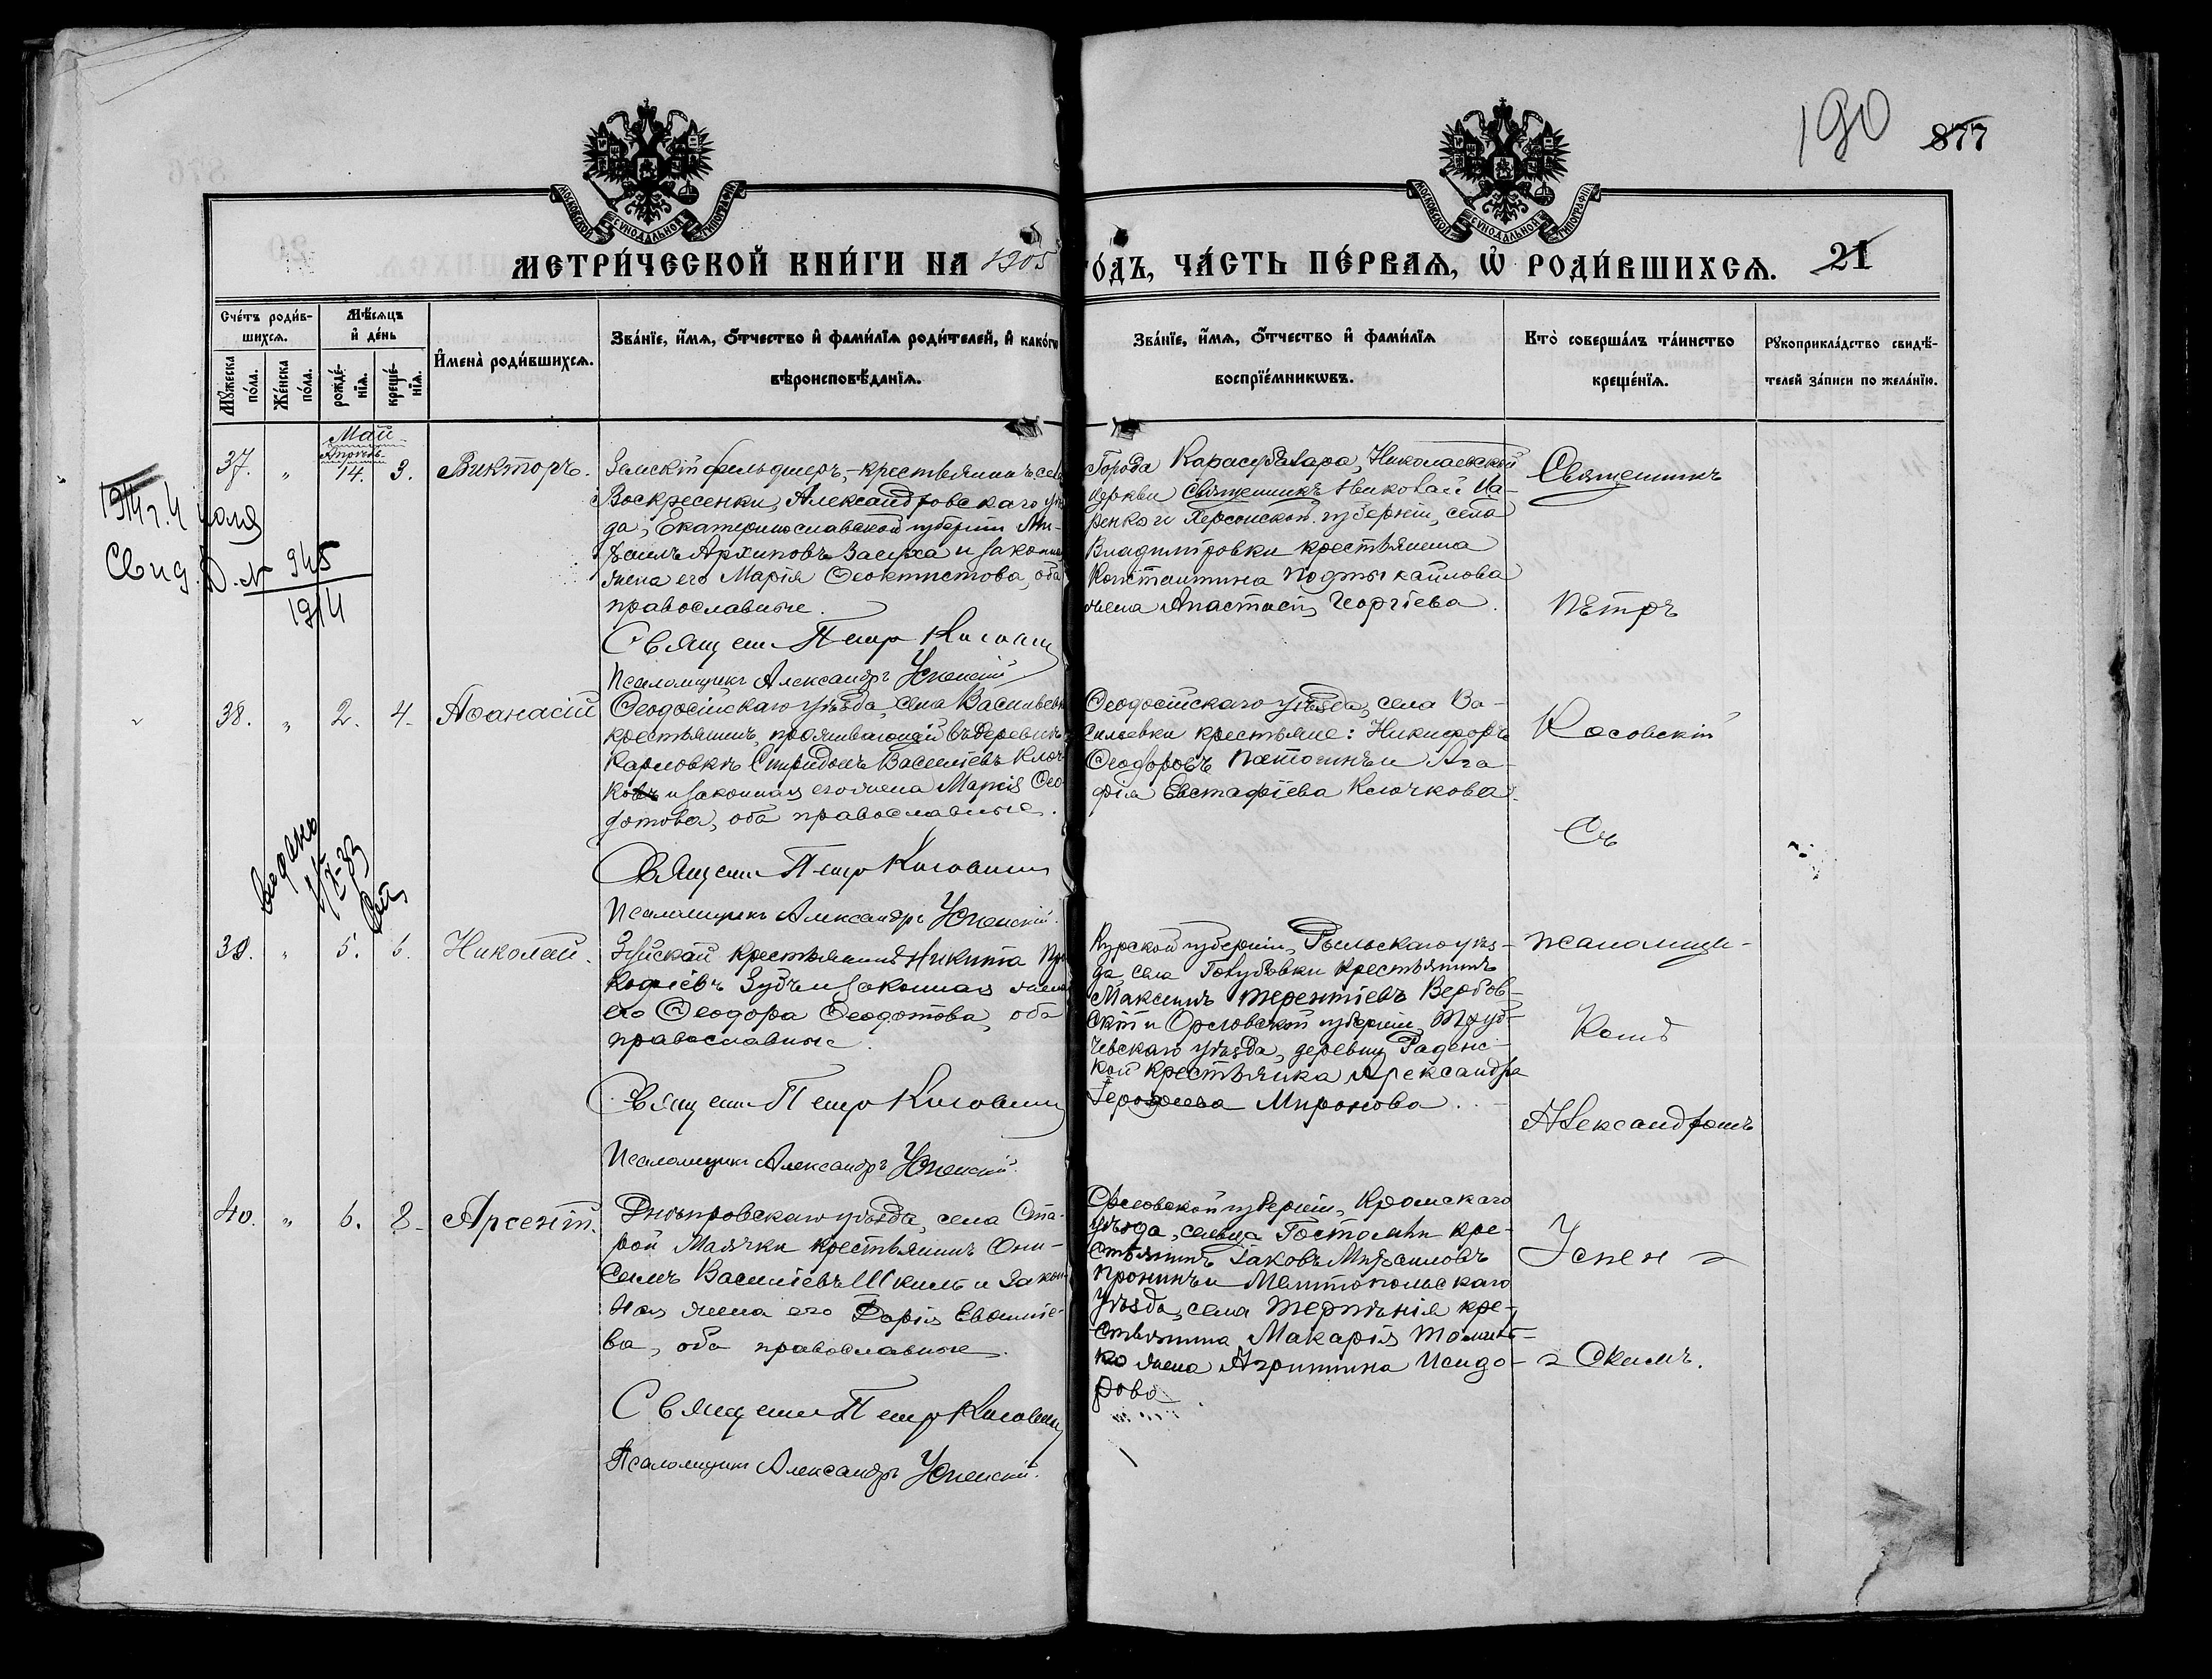 190
877
МОСКОВСКОЙ СУНОДАЛЬНОЙ ТИПОГРАФІИ
МОСКОВСКОЙ СУНОДАЛЬНОЙ ТИПОГРАФІИ
МЕТРИ́ЧЕСКОЙ КНИ́ГИ НА 1905
ГО́ДЪ, ЧА́СТЬ ПЕ́РВАѦ, Ѡ҆ РОДИ́ВШИХСѦ. 21
Сче́тъ роди́в-
шихсѧ.
Мꙋ́жеска по́ла.
Же́нска по́ла.
Мѣ́сѧцъ
и҆ де́нь
рожде́-
нїѧ.
креще́-
нїѧ.
И҆мена̀ роди́вшихсѧ.
Зва́нїе, и҆́мѧ, ѻ҆́тчество и҆ фами́лїѧ роди́телей, и҆ како́гѡ
вѣроисповѣ́данїѧ.
Зва́нїе, и҆́мѧ, ѻ҆́тчество и҆ фами́лїѧ
воспрїе́мникѡвъ.
Кто̀ соверша́лъ та́инство
креще́нїѧ.
Рꙋкоприкла́дство свидѣ́-
телей за́писи по жела́нїю.
Май
Апрѣль
37. " 14. 3. Викторъ.
Земскій фельдшеръ,-крестьянинъ села
Воскресенки, Александровскаго уѣз
да, Екатеринославской губерніи Ми-
хаилъ Архиповъ Засуха и законная
жена его Марія Ѳеоктистова, оба
православные.
Священ Петр Косовский
Псаломщикъ Александръ Успенскій
Города Карасубазара, Николаевской
церкви священникъ Николай Ца-
ренко и Херсонской губерніи, села
Владиміровки крестьянина
Константина
жена Анастасія Георгіева.
1914 г. 4 іюля
Свид. D. N 945
1914
38. " 2. 4. Аѳанасій
Ѳеодосійскаго уѣзда, села Васильевки
крестьянинъ, проживающій въ деревнѣ
Карловкѣ Спиридонъ Васильевъ Ключ-
ковъ и законная его жена Марія Ѳео-
дотова, оба православные.
Священ Петр Косовский
Псаломщикъ Александръ Успенскій.
Ѳеодосійскаго уѣзда, села Ва-
сильевки крестьяне: Никифоръ
Ѳеодоровъ и Ага-
фія Евстафіева Ключкова.
выдано
39. " 5. 6. Николай.
Зуйскай крестьянинъ Никита Про
кофіевъ Зубъ и законная жена
его Ѳеодора Ѳеодотова, оба
православные.
Священ Петр Косовский
Псаломщикъ Александръ Успенскій.
Курской губерніи, Рыльскаго уѣз-
да, села Голубовки крестьянинъ
Максимъ Терентіевъ Вербов-
скій и Орловской губерніи, Труб-
чевскаго уѣзда, деревни Раденс-
кой крестьянка Александра
Миронова.
40. " 6. 8. Арсеній.
Днѣпровскаго уѣзда, села Ста-
рой Маячки крестьянинъ Они-
симъ Васильевъ Шкиль и закон-
ная жена его Дарія Евфиміе-
ва, оба православные.
Священ Петр Косовский
Псаломщикъ Александръ Успенскій.
Орловской губерніи, Кромскаго
уѣзда, сельца Гостомли кре-
стьянинъ Іаковъ Михаиловъ
Пронинъ и Мелитопольскаго
уѣзда, села Терпѣнія кре-
стьянина Макарія
жена Агрипина Исидо-
рова
Священникъ
Пѣтръ
Косовскій
Съ
псаломщи-
комъ
Александромъ
Успен-
-скимъ.